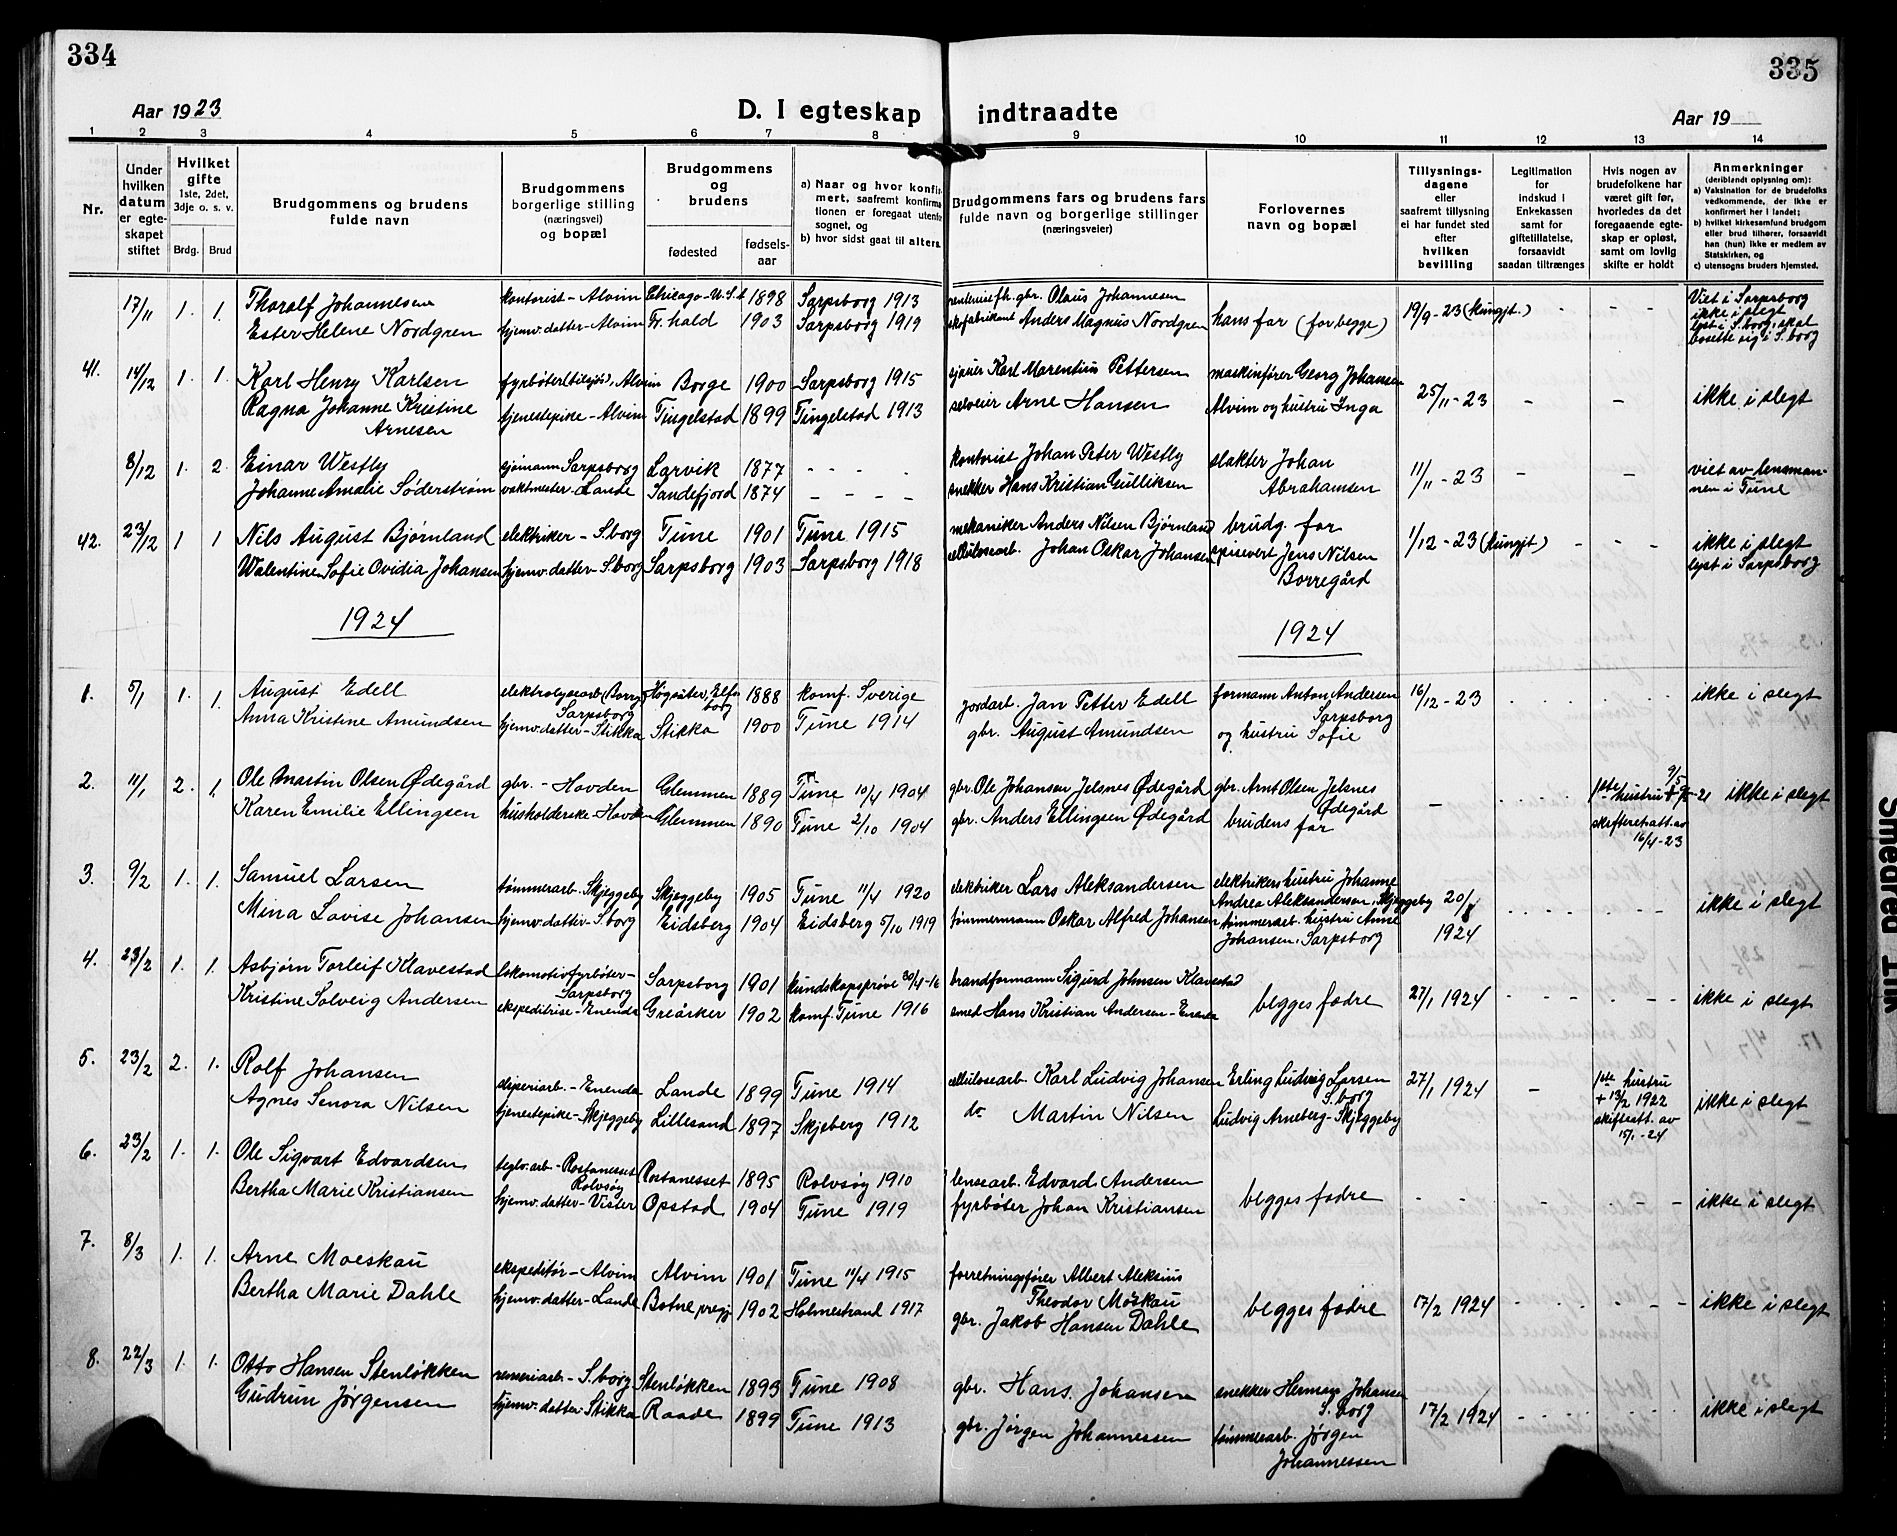 334
335
Aar 1923
D. I egteskap indtraadte
Aar 19
1 2 3 4 5 6 7 8 9 10 11 12 13 14
Nr.
Under hvilken datum er egteskapet stiftet
Hvilket gifte 1ste, 2det, 3dje o. s. v.
Brdg. Brud
Brudgommens og brudens fulde navn
Brudgommens borgerlige stilling (næringsvei) og bopæl
Brudgommens og brudens
fødested
fødselsaar
a) Naar og hvor konfirmert, saafremt konfirmationen er foregaat utenfor sognet, og
b) hvor sidst gaat til alters.
Brudgommens fars og brudens fars fulde navn og borgerlige stillinger (næringsveier)
Forlovernes navn og bopæl
Tillysningsdagene eller saafremt tillysning ei har fundet sted efter hvilken bevilling
Legitimation for Indskud i Enkekassen samt for giftetillatelse, forsaavidt saadan tiltrænges
Hvis nogen av brudefolkene har været gift før, hvorledes da det foregaaende egteskap er opløst, samt om lovlig skifte er holdt
Anmerkninger (deriblandt oplysning om):
a) Vaksination for de brudefolks vedkommende, der ikke er konfirmert her i landet;
b) hvilket kirkesamfund brudgom eller brud tilhører, forsaavidt han (hun) ikke er medlem av Statskirken, og
c) utensogns bruders hjemsted.
17/11 1. 1. Thoralf Johannesen kontorist - Alvim Chicago - U.S.A 1898 Sarpsborg 1913 fh. gbr. Olaus Johannesen
Ester Helene Nordgren hjemv. datter - Alvim Fr.hald 1903 Sarpsborg 1919 skofabrikant Anders Magnus Nordgren hans far (for begge) 19/9-23 (kungjt.) - - - Viet i Sarpsborg
ikke i slegt
lyst i S.borg, skal
bosette sig i S.borg
41. 14/12 1. 1. Karl Henry Karlsen fyrbøter, Alvim Borge 1900 Sarpsborg 1915 sjauer Karl Marentius Pettersen maskinfører Georg Johansen
Ragna Johanne Kristine Arnesen tjenestepike - Alvim Tingelstad 1899 Tingelstad 1913 selveier Arne Hansen Alvim og hustru Inga 25/11-23 - - ikke i slegt
8/12 1. 2. Einar Westly sjømann Sarpsborg Larvik 1877 - - - - kontorist Johan Peter Westly slakter Johan
Johanne Amalie Söderström vaktmester - Lande Sandefjord 1874 - - - - snekker Hans Kristian Gulliksen Abrahamsen 11/11-23 - - viet av lensman-
nen i Tune
42. 23/12 1 1 Nils August Bjørnland elektriker - S.borg Tune 1901 Tune 1915 mekaniker Anders Nilsen Bjørnland brudg. far
Walentine Sofie Ovidia Johansen hjemv. datter - S.borg Sarpsborg 1903 Sarpsborg 1918 cellulosearb. Johan Oskar Johansen spisevert Jens Nilsen
Borregård 1/12-23 (kungjt.) - - - ikke i slegt
lyst i Sarpsborg
1924
1924
1. 5/1 1. 1. August Edell elektrolysearb. (Borreg.) Sarpsborg Högsäter, Elfsborg 1888 konf. Sverige jordart. Jan Petter Edell formann Anton Andersen Sarpsborg 16/12-23
Anna Kristine Amundsen hjemv. datter - Stikka Stikka 1900 Tune 1914 gbr. August Amundsen og hustru Sofie ikke i slegt
2. 11/1 2. 1. Ole Martin Olsen Ødegård gbr. - Hovden Glemmen 1889 Tune 10/4 1904 gbr. Ole Johansen Jelsnes Ødegård gbr. Arnt Olsen Jelsnes Ødegård
Karen Emilie Ellingsen husholderske - Hovden Glemmen 1890 Tune 2/10 1904 gbr. Anders Ellingsen Ødegård brudens far - 1ste hustru + 9/5-21
skifteretsatt. av
16/4-23 ikke i slegt
3. 9/2 1. 1. Samuel Larsen tømmerarb. Skjeggeby Skjeggeby 1905 Tune 11/4 1920 elektriker Lars Aleksandersen elektrikers hustru Johanne
Andrea Aleksandersen, Skjeggeby
Mina Lovise Johansen hjemv. datter - S.borg Eidsberg 1904 Eidsberg 5/10 1919 tømmermann Oskar Alfred Johansen tømmerarb. hustru Anne
Johansen, Sarpsborg 20/1 1924 ikke i slegt
4. 23/2 1. 1. Asbjørn Torleif Klavestad lokomotivfyrbøter - Sarpsborg Sarpsborg 1901 kundskapsprøve 30/4-16 brandformann Sigurd Johnsen Klavestad
Kristine Solveig Andersen ekspeditrise - Enenda Greåker 1902 konf. Tune 1916 smed Hans Kristian Andersen - Enenda begges fædre 27/1 1924 ikke i slegt
5. 23/2 2. 1. Rolf Johansen - Enenda Lande 1899 Tune 1914 cellulosearb. Karl Ludvig Johansen Erling Ludvig Larsen S.borg 27/1 1924
Agnes Senora Nilsen tjenestepike - Skjeggeby Lillesand 1897 Skjeberg 1912 do Martin Nilsen Ludvig Arneberg - Skjeggeby - 1ste hustru
+ 13/2 1922
skiftsatt. av
15/1-24 ikke i slegt
6. 23/2 1. 1. Ole Sigvart Edvardsen teglv.arb - Rostanesset Rolvsøy Rostanesset 1895 Rolvsøy 1910 lensearb. Edvard Andersen
Bertha Marie Kristiansen hjemv. datter - Vister Opstad 1904 Tune 1919 fyrbøter Johan Kristiansen begges fædre ikke i slegt
7. 8/3 1. 1. Arne Moeskau ekspeditør - Alvim Alvim 1901 Tune 11/4 1915 forretningsfører Albert Aleksius
Theodor Moskau
Bertha Marie Dahle hjemv. datter - Lande Botne pregj. 1902 Holmestrand 1917 gbr. Jakob Hansen Dahle begges fædre 17/2 1924 ikke i slegt
8. 22/3 1. 1. Otto Hansen Stenløkken - S.borg Stenløkken 1893 Tune 1908 gbr. Hans Johansen snekker Herman Johansen S.borg
Gudrun Jørgensen hjemv. datter - Stikka Raade 1899 Tune 1913 gbr. Jørgen Johannessen tømmerarb. Jørgen
Johannessen 17/2 1924 ikke i slegt